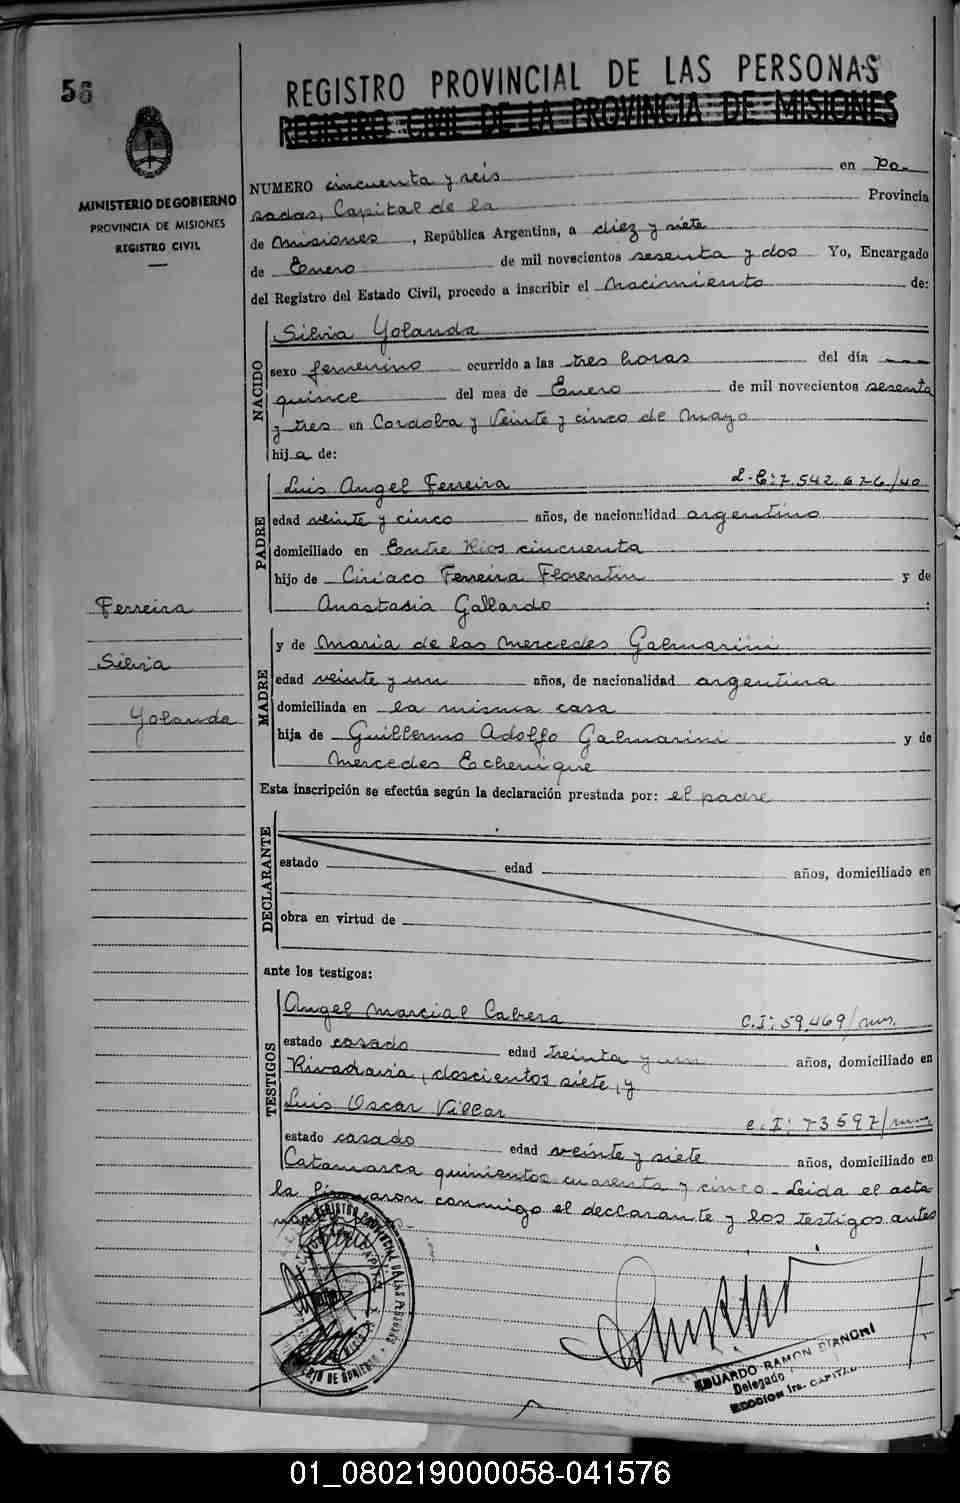 56
REGISTRO PROVINCIAL DE LAS PERSONAS
REGISTRO CIVIL DE LA PROVINCIA DE MISIONES
MINISTERIO DE GOBIERNO
PROVINCIA DE MISIONES
REGISTRO CIVIL
NUMERO cincuenta y seis en Po-
sadas, Capital de la Provincia
de Misiones, República Argentina, a diez y siete
de Enero de mil novecientos sesenta y dos Yo, Encargado
del Registro del Estado Civil, procedo a inscribir el nacimiento de:
NACIDO
Silvia Yolanda
sexo femenino ocurrido a las tres horas del día
quince del mes de Enero de mil novecientos sesenta
y tres en Cordoba y Veinte y cinco de Mayo
hija de:
PADRE
Luis Angel Ferreira L-E: 7.542.676/40
edad veinte y cinco años, de nacionalidad argentino
domiciliado en Entre Rios cincuenta
hijo de Ciriaco Ferreira Florentin y de
Anastasia Gallardo :
Ferreira
Silvia
Yolanda
MADRE
y de Maria de las Mercedes Galmarini
edad veinte y un años, de nacionalidad argentina
domiciliada en la misma casa
hija de Guillermo Adolfo Galmarini y de
Mercedes Echenique
Esta inscripción se efectúa según la declaración prestada por: el padre
DECLARANTE
estado edad años, domiciliado en
obra en virtud de
ante los testigos:
TESTIGOS
Angel Marcial Cabrera C.I: 59.469/mns.
estado casado edad treinta y un años, domiciliado en
Rivadavia, doscientos siete, y
Luis Oscar Villar C.I: 73597/mns.
estado casado edad veinte y siete años, domiciliado en
Catamarca quinientos cuarenta y cinco - Leida el acta
la firmaron conmigo el declarante y los testigos antes
REGISTRO PROVINCIAL DE LAS PERSONAS
EDUARDO RAMON BIANCHI
Delegado
SECCION 1ra. CAPITAL
01_080219000058-041576